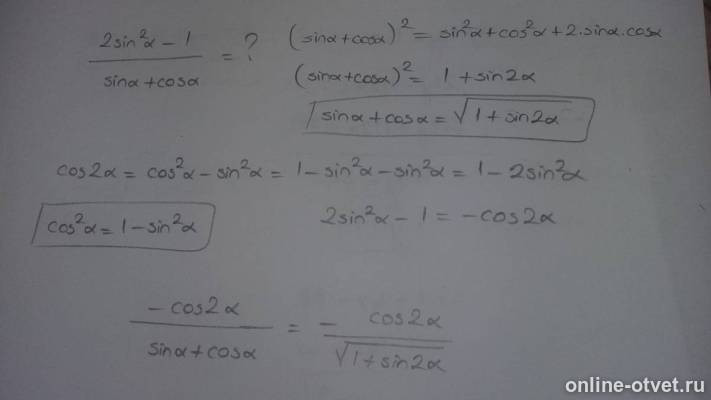 (2sin²α − 1) / (sinα + cosα) = ?
(sinα + cosα)² = sin²α + cos²α + 2·sinα·cosα
(sinα + cosα)² = 1 + sin2α
sinα + cosα = √(1 + sin2α)
cos2α = cos²α − sin²α = 1 − sin²α − sin²α = 1 − 2sin²α
cos²α = 1 − sin²α
2sin²α − 1 = −cos2α
(−cos2α) / (sinα + cosα) = − cos2α / √(1 + sin2α)
online-otvet.ru